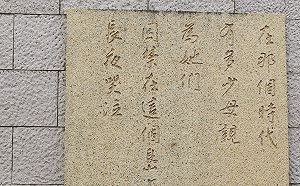 在那個時代
有多少母親
為她們
囚禁在這個島
長夜哭泣